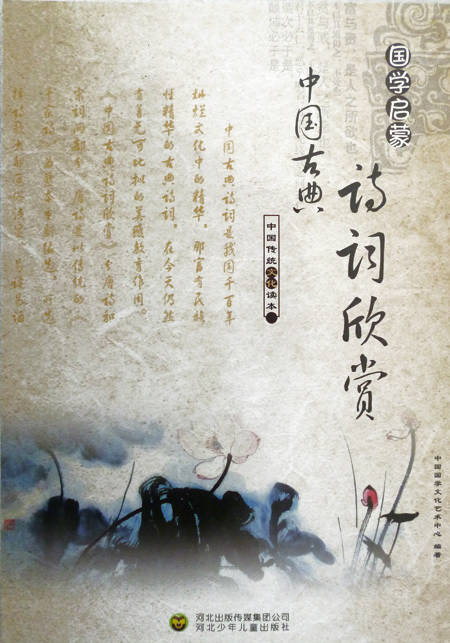 富与贵，是人之所欲也
国学启蒙
中国古典
诗词欣赏
中国传统文化读本
中国古典诗词是我国千百年
灿烂文化中的精华，那富有民族
性精华的古典诗词，在今天仍然
有着无可比拟的美感教育作用。
《中国古典诗词欣赏》
唐诗和
宋词两部分
唐诗是以传统的《
中国国学文化艺术中心 编著
河北出版传媒集团公司
河北少年儿童出版社